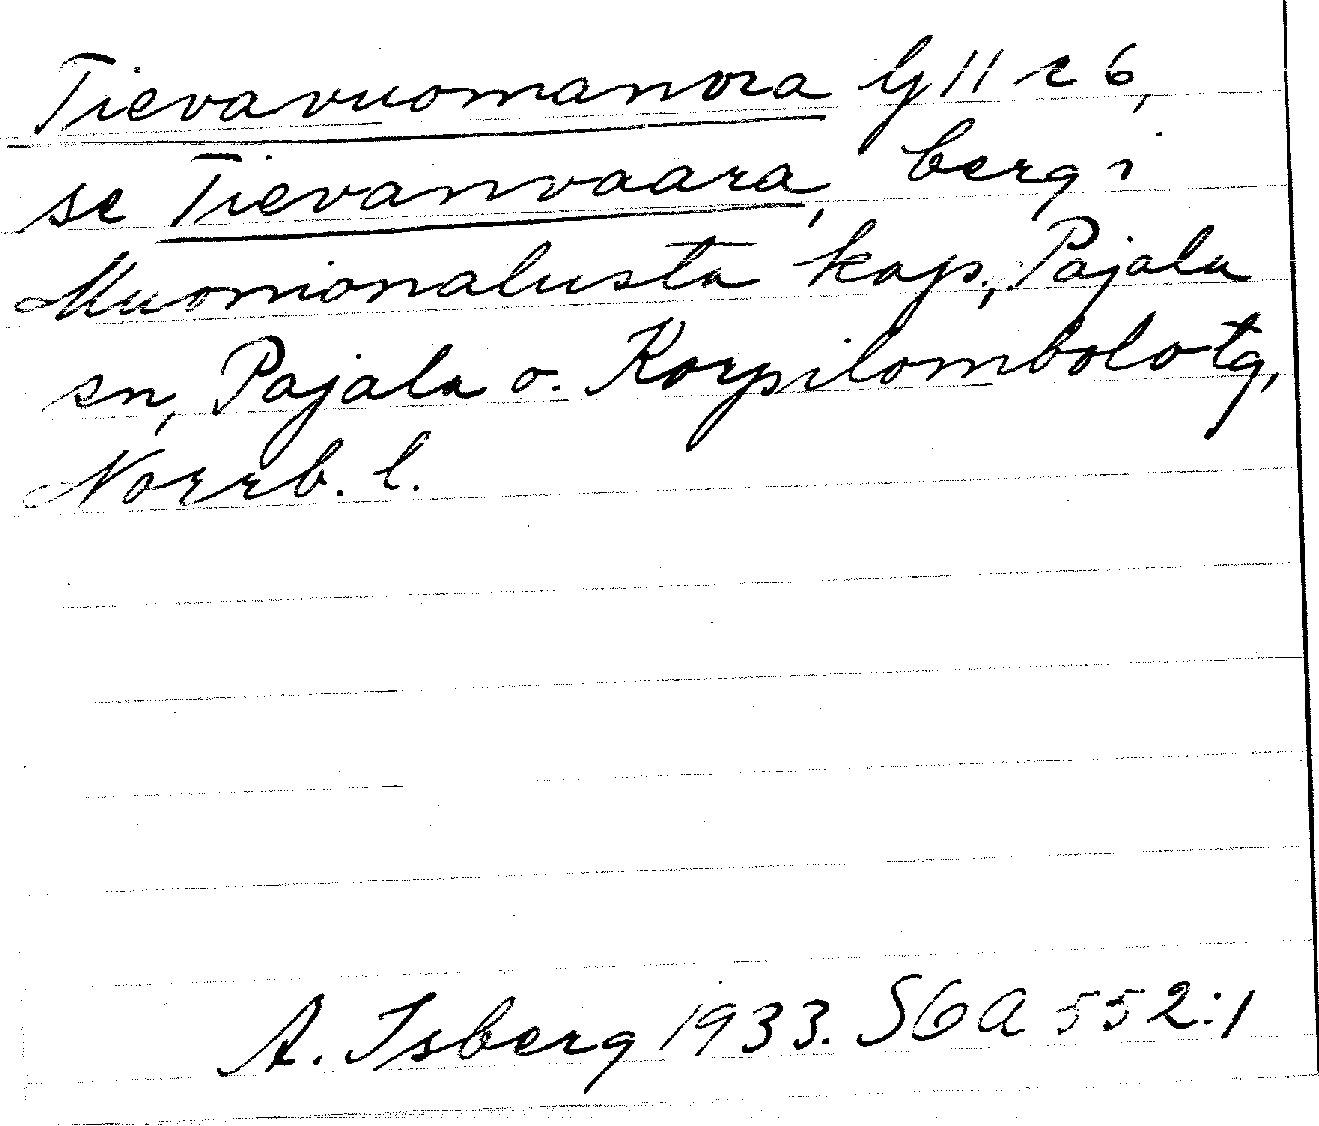 Tievavuomanvra G 11 c 6,
se Tievanvaara, berg i
Muonionalusta kap., Pajala
sn, Pajala o. Korpilombolo tg,
Norrb. l.
A. Isberg 1933. SGA 552:1